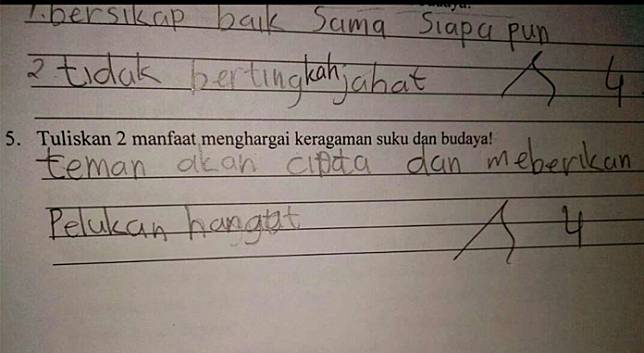 1. bersikap baik Sama Siapa pun
2 tidak bertingkah jahat 4
5. Tuliskan 2 manfaat menghargai keragaman suku dan budaya!
teman akan cipta dan meberikan
Pelukan hangat 4